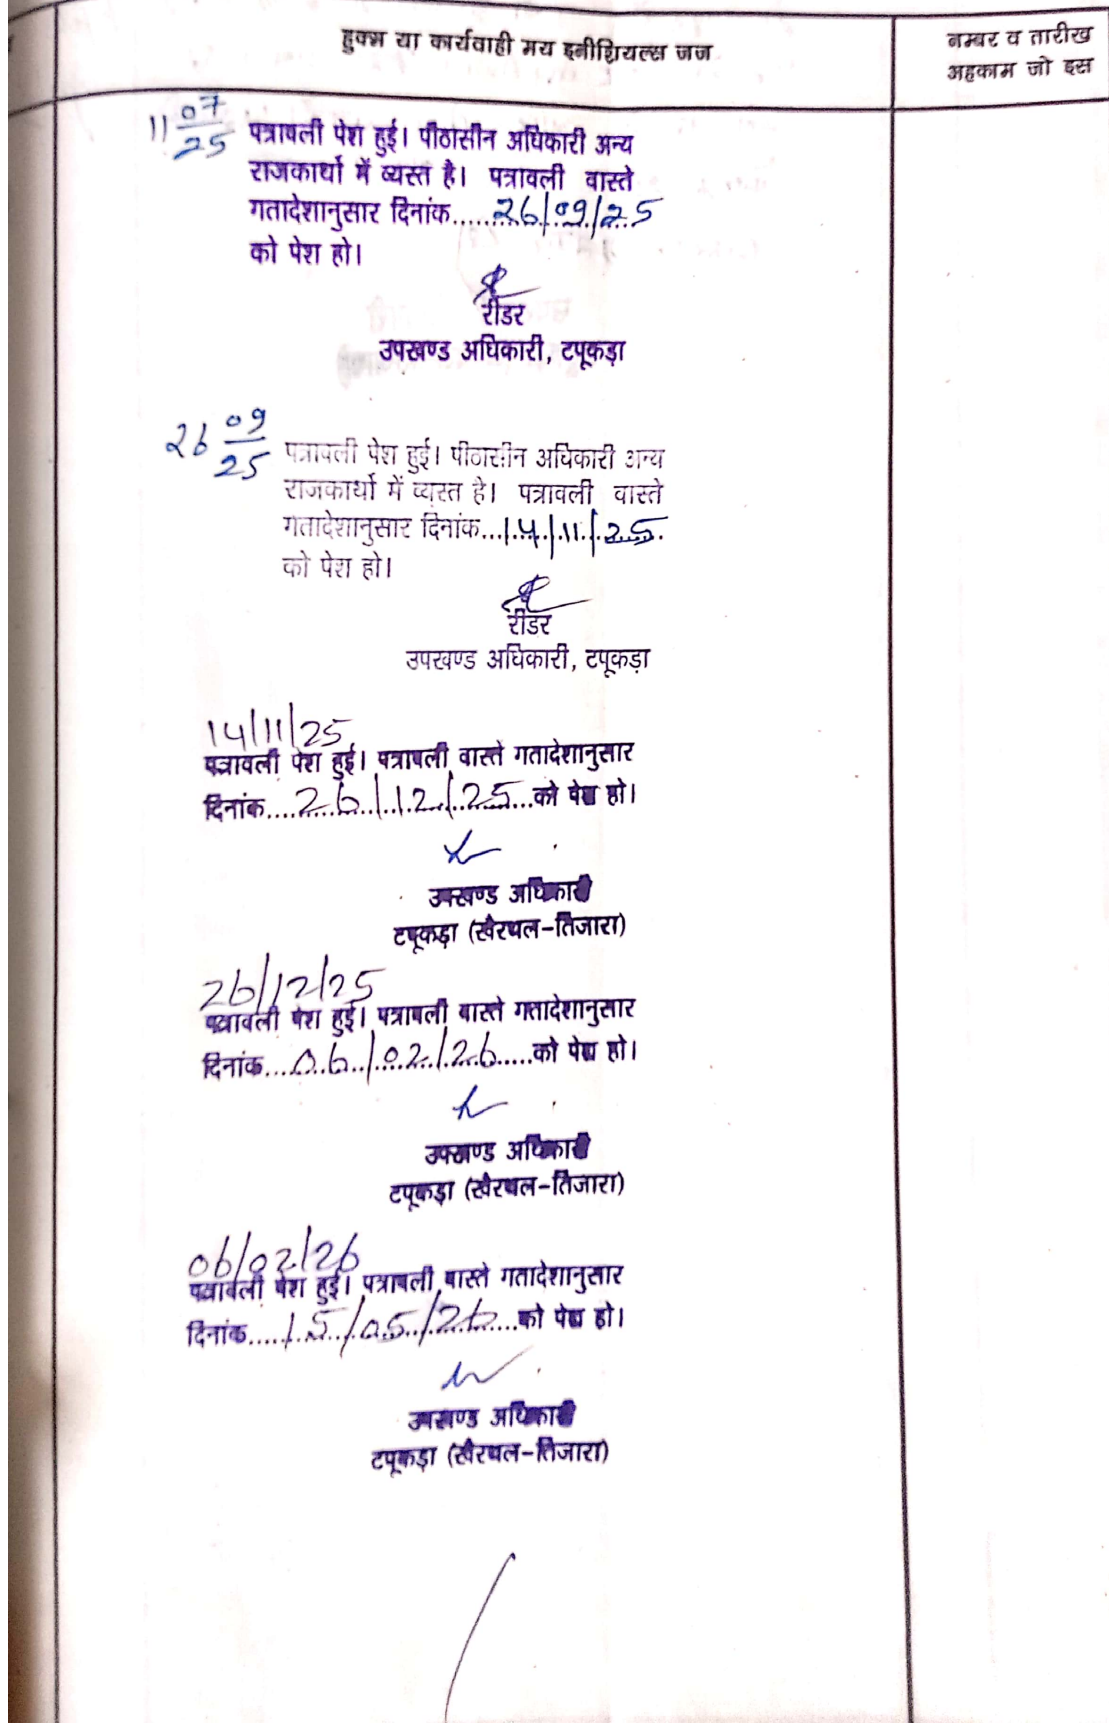 हुक्म या कार्यवाही मय इनीशियल्स जज
नम्बर व तारीख
अहकाम जो इस
11 07/25
पत्रावली पेश हुई। पीठासीन अधिकारी अन्य
राजकार्यो में व्यस्त है। पत्रावली वास्ते
गतादेशानुसार दिनांक......26/09/25
को पेश हो।
रीडर
उपखण्ड अधिकारी, टपूकड़ा
26 09/25
पत्रावली पेश हुई। पीठासीन अधिकारी अन्य
राजकार्यो में व्यस्त है। पत्रावली वास्ते
गतादेशानुसार दिनांक...14/11/25.
को पेश हो।
रीडर
उपखण्ड अधिकारी, टपूकड़ा
14/11/25
पत्रावली पेश हुई। पत्रावली वास्ते गतादेशानुसार
दिनांक....26/12/25...को पेश हो।
उपखण्ड अधिकारी
टपूकड़ा (खैरथल-तिजारा)
26/12/25
पत्रावली पेश हुई। पत्रावली वास्ते गतादेशानुसार
दिनांक....06/02/26.....को पेश हो।
उपखण्ड अधिकारी
टपूकड़ा (खैरथल-तिजारा)
06/02/26
पत्रावली पेश हुई। पत्रावली वास्ते गतादेशानुसार
दिनांक.....15/05/26....को पेश हो।
उपखण्ड अधिकारी
टपूकड़ा (खैरथल-तिजारा)